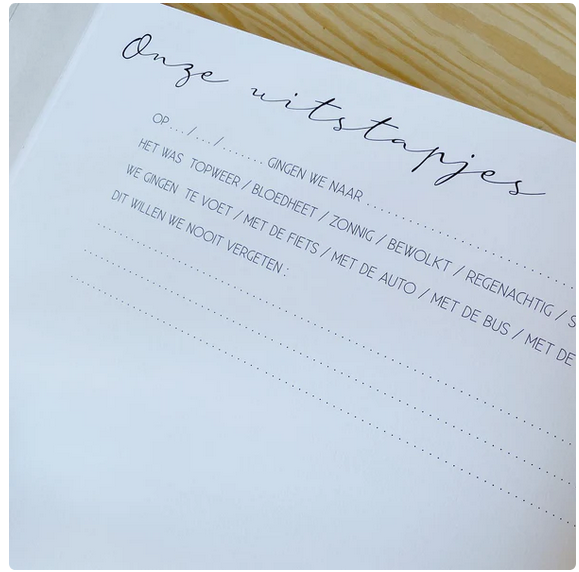 Onze uitstapjes
OP.../.../........ GINGEN WE NAAR ........................................
HET WAS TOPWEER / BLOEDHEET / ZONNIG / BEWOLKT / REGENACHTIG /
WE GINGEN TE VOET / MET DE FIETS / MET DE AUTO / MET DE BUS / MET DE
DIT WILLEN WE NOOIT VERGETEN :